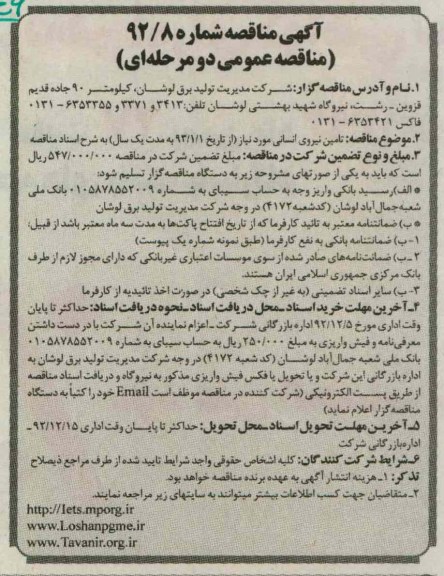 آگهی مناقصه شماره ۹۲/۸
(مناقصه عمومی دو مرحله‌ای)
۱ـ نام و آدرس مناقصه گزار: شرکت مدیریت تولید برق لوشان، کیلومتر ۹۰ جاده قدیم
قزوین ـ رشت، نیروگاه شهید بهشتی لوشان تلفن: ۳۴۱۳ و ۳۳۷۱ و ۶۳۵۳۳۵۵ - ۰۱۳۱
فاکس ۶۳۵۳۴۲۱ - ۰۱۳۱
۲ـ موضوع مناقصه: تامین نیروی انسانی مورد نیاز (از تاریخ ۹۳/۱/۱ به مدت یک سال) به شرح اسناد مناقصه
۳ـ مبلغ و نوع تضمین شرکت در مناقصه: مبلغ تضمین شرکت در مناقصه ۵۴۷/۰۰۰/۰۰۰ ریال
است که باید به یکی از صورتهای مشروحه زیر به دستگاه مناقصه گزار تسلیم شود:
* الف) رسید بانکی واریز وجه به حساب سیبای به شماره ۰۱۰۵۸۷۸۵۵۲۰۰۹ بانک ملی
شعبه جمال‌آباد لوشان (کدشعبه ۴۱۷۲) در وجه شرکت مدیریت تولید برق لوشان
* ب) ضمانتنامه معتبر به تائید کارفرما که از تاریخ افتتاح پاکت‌ها به مدت سه ماه معتبر باشد از قبیل:
۱ـ ب) ضمانتنامه بانکی به نفع کارفرما (طبق نمونه شماره یک پیوست)
۲ـ ب) ضمانت‌نامه‌های صادر شده از سوی موسسات اعتباری غیربانکی که دارای مجوز لازم از طرف
بانک مرکزی جمهوری اسلامی ایران هستند.
۳ـ ب) سایر اسناد تضمینی (به غیر از چک شخصی) در صورت اخذ تائیدیه از کارفرما
۴ـ آخرین مهلت خرید اسناد ـ محل دریافت اسناد ـ نحوه دریافت اسناد: حداکثر تا پایان
وقت اداری مورخ ۹۲/۱۲/۵ اداره بازرگانی شرکت ـ اعزام نماینده آن شرکت با در دست داشتن
معرفی‌نامه و فیش واریزی به مبلغ ۲۵۰/۰۰۰ ریال به حساب سیبای به شماره ۰۱۰۵۸۷۸۵۵۲۰۰۹
بانک ملی شعبه جمال‌آباد لوشان (کد شعبه ۴۱۷۲) در وجه شرکت مدیریت تولید برق لوشان به
اداره بازرگانی این شرکت و یا تحویل یا فکس فیش واریزی مذکور به نیروگاه و دریافت اسناد مناقصه
از طریق پست الکترونیکی (شرکت کننده در مناقصه موظف است Email خود را کتباً به دستگاه
مناقصه گزار اعلام نماید)
۵ـ آخرین مهلت تحویل اسناد ـ محل تحویل: حداکثر تا پایان وقت اداری ۹۲/۱۲/۱۵ ـ
اداره بازرگانی شرکت
۶ـ شرایط شرکت کنندگان: کلیه اشخاص حقوقی واجد شرایط تایید شده از طرف مراجع ذیصلاح
تذکر: ۱ـ هزینه انتشار آگهی به عهده برنده مناقصه خواهد بود.
۲ـ متقاضیان جهت کسب اطلاعات بیشتر میتوانند به سایتهای زیر مراجعه نمایند.
http://Iets.mporg.ir
www.Loshanpgme.ir
www.Tavanir.org.ir